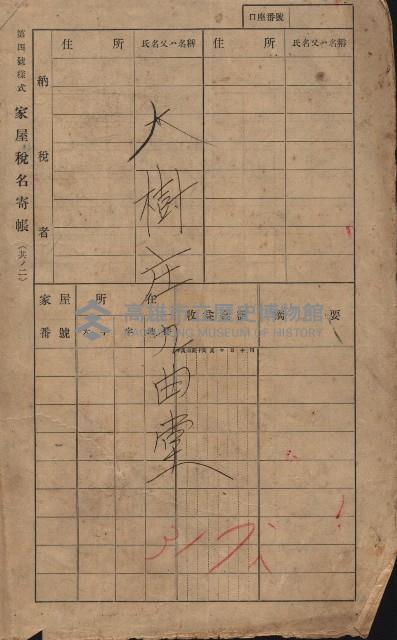 口座番號
第四號樣式
家屋稅名寄帳
(其ノ二)
納稅者
住所
氏名又ハ名稱
住所
氏名又ハ名稱
大樹庄九曲堂
家屋番號
所在
摘要
高雄市立歷史博物館
KAOHSIUNG MUSEUM OF HISTORY